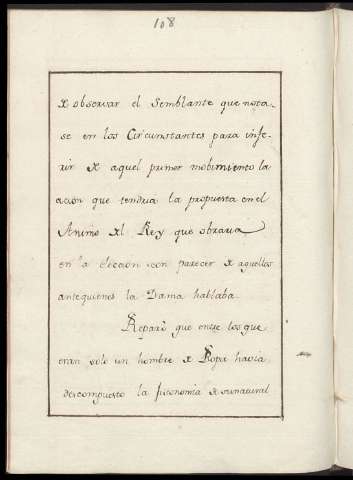 108
D observar el Semblante que nota-
se en los Circunstantes para infe-
rir D aquel primer mobimiento la
acion que tendria la propuesta en el
Animo Dl Rey que obraria
en la eleccion con parecer D aquellos
antequienes la Dama hablaba.
Reparò que entre los que
eran solo un hombre D Ropa havia
descompuesto la fisonomia D su natural